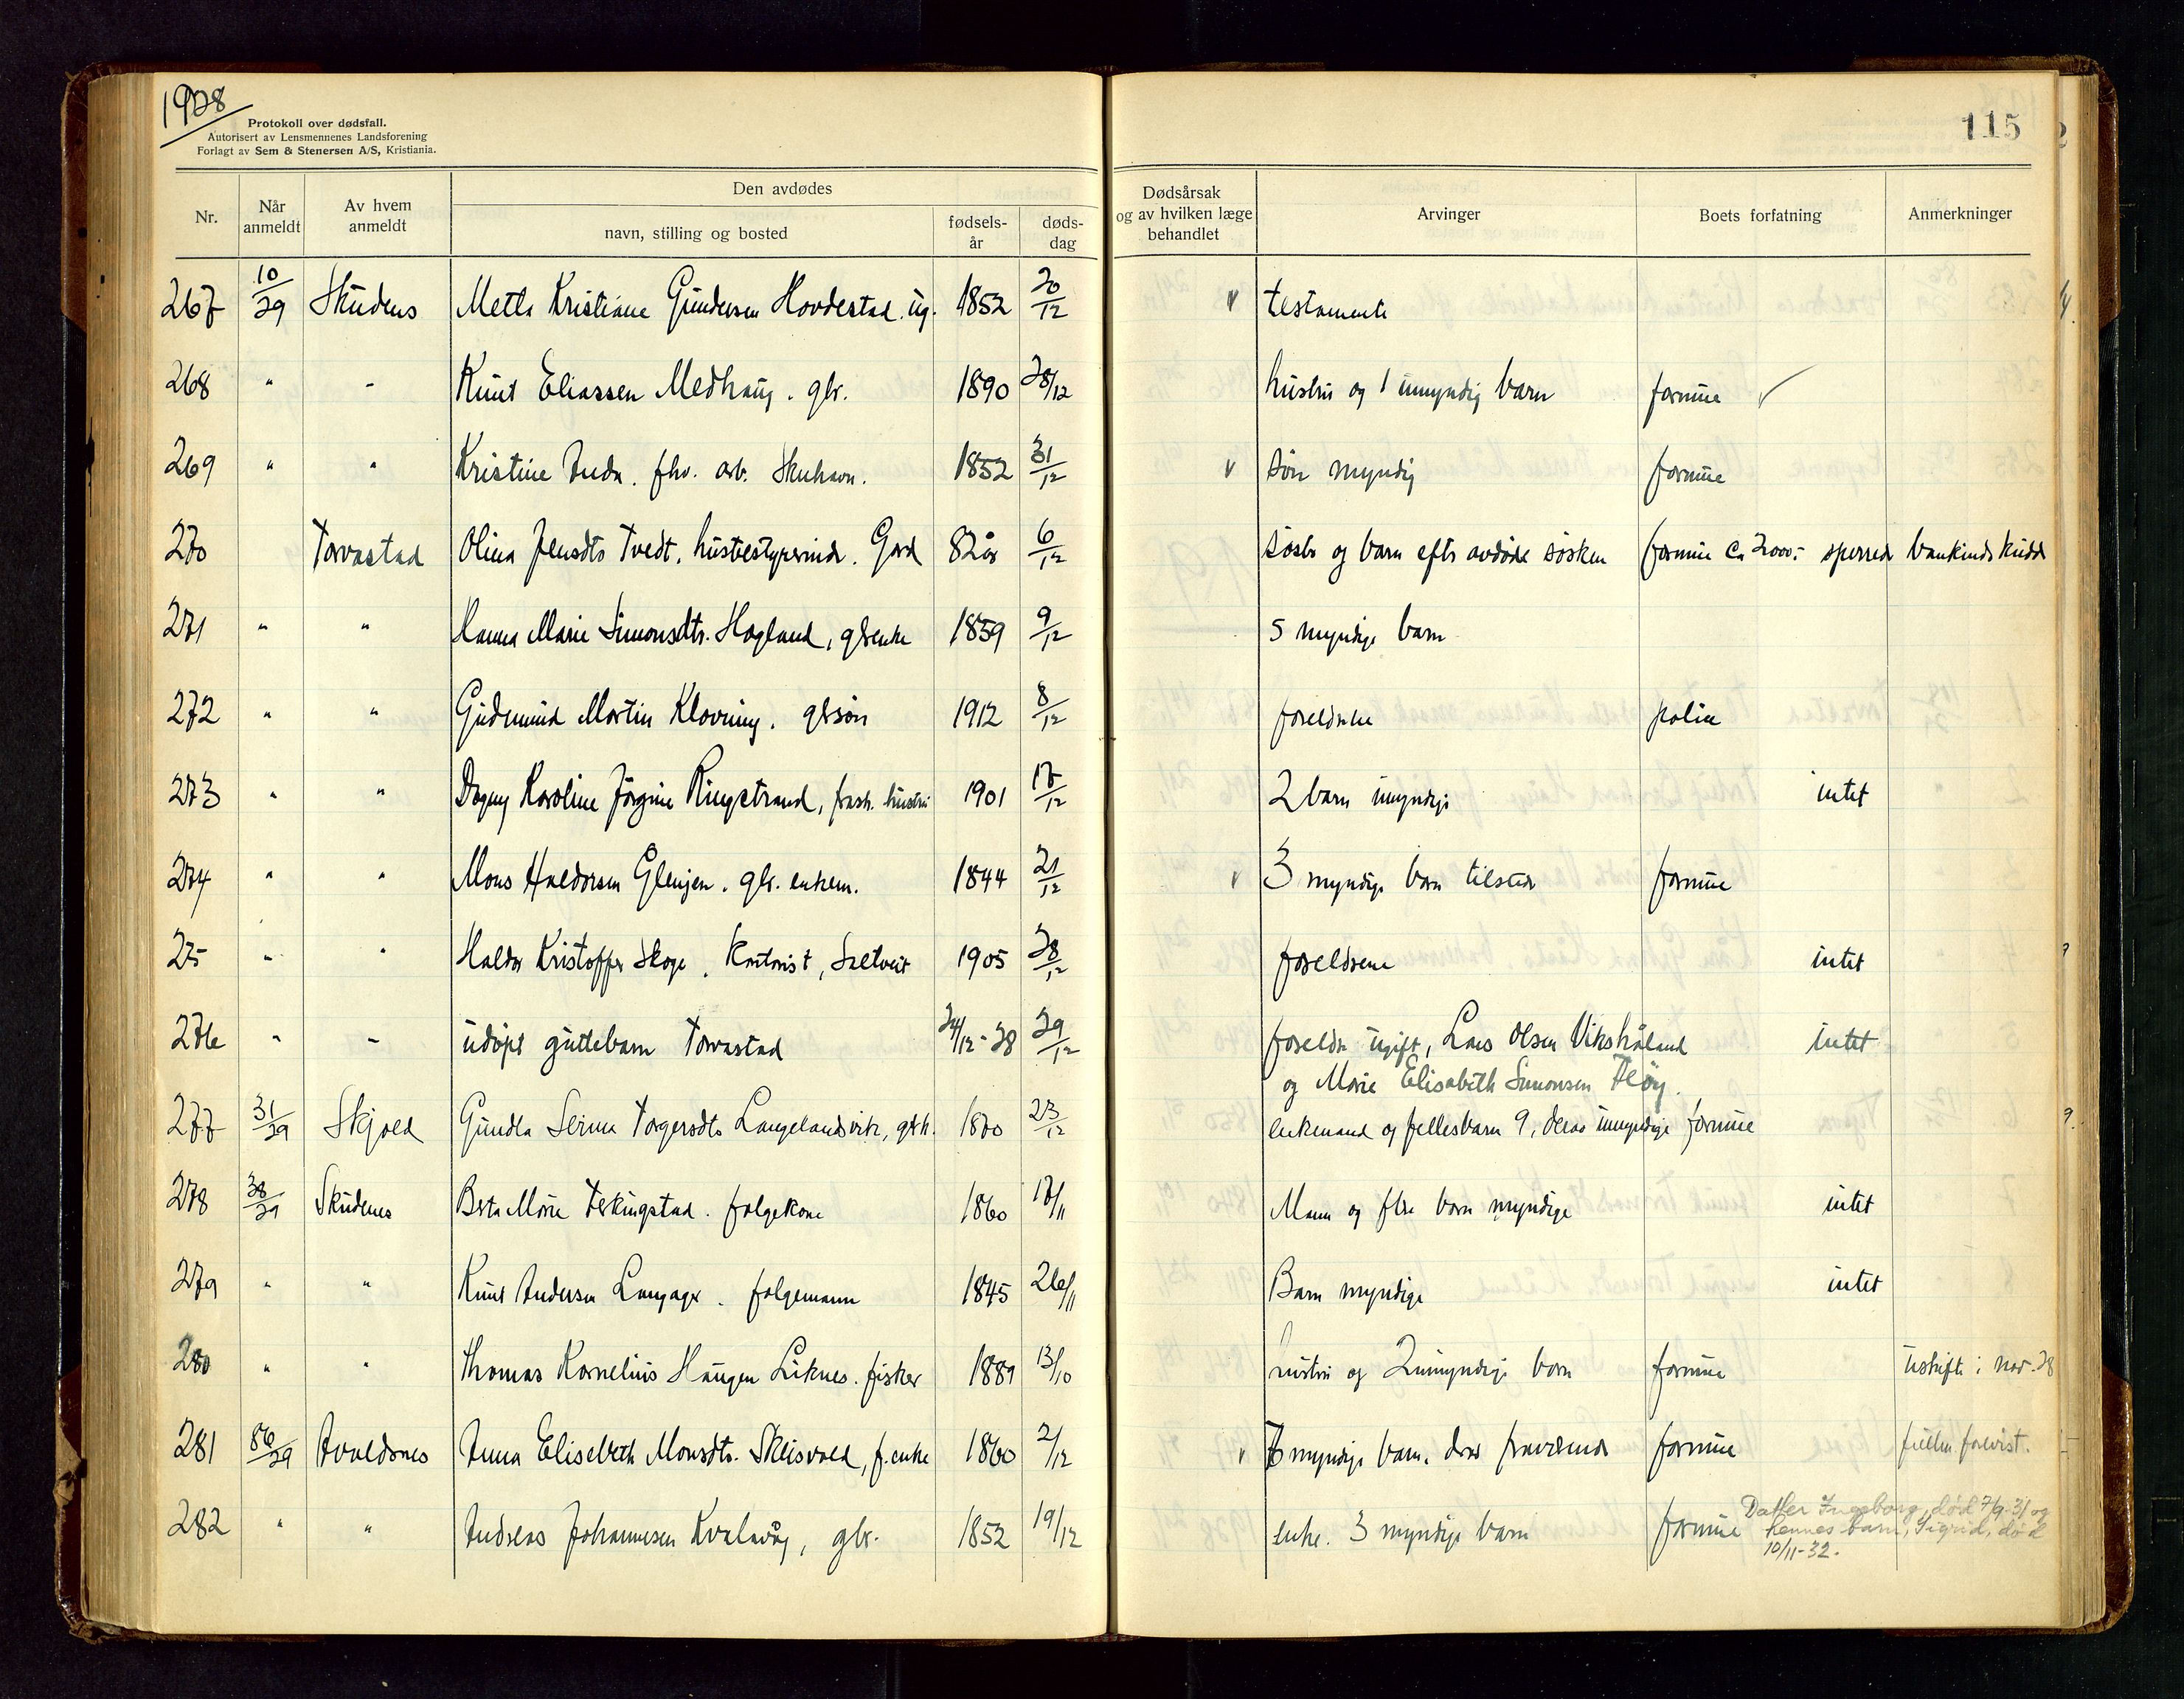 1928
Protokoll over dødsfall.
Autorisert av Lensmennenes Landsforening
Forlagt av Sem & Stenersen A/S, Kristiania.
115
Nr. Når anmeldt Av hvem anmeldt Den avdødes navn, stilling og bosted fødsels-år døds-dag Dødsårsak og av hvilken læge behandlet Arvinger Boets forfatning Anmerkninger
267 10/29 Skudenes Mette Kristiane Gundersen Hovdestad. ug. 1852 20/12 v testamente
268 " - Knut Eliassen Medhaug. gbr. 1890 28/12 hustru og 1 umyndig barn formue ✓
269 " " Kristine fhv. arb. Skuhavn. 1852 31/12 v søn myndig formue
270 Torvastad Olina Jensdtr Tvedt. husbestyrerinde. Gard 82 år 6/12 søster og barn efter avdøde søsken formue ca 2000:- sperred bankindskudd
271 " " Hanna Marie Simonsdtr. Hagland, gbrenke 1859 9/12 5 myndige barn
272 " " Gudmund Martin Klovning. gbrsøn 1912 8/12 foreldrene
273 " " Dagny Karoline Jørgine Ringstrand, hustru 1901 17/12 2 barn umyndige intet
274 " " Mons Haldorsen Glenjen. gbr. enkem. 1844 21/12 v 3 myndige barn tilstede formue
275 " " Haldor Kristoffer Skoge. Kontorist, Saltveit 1905 28/12 foreldrene intet
276 " - udøpt guttebarn Torvastad 24/12-28 29/12 foreldre ugift, Lars Olsen Vikshåland intet
og Marie Elisabeth Simonsen Fløy.
277 31/29 Skjold Gundla Serine Torgersdtr Langelandsvik, gbrh. 1870 23/12 enkemand og fellesbarn 9, derav umyndige formue
278 38/29 Skudenes Berta Marie Ferkingstad. folgekone 1860 17/11 Mann og flere barn myndige intet
279 " " Knut Andersen Langåker. folgemann 1845 26/11 Barn myndige intet
280 " " Thomas Kornelius Haugen Liknes. fisker 1889 13/10 hustru og 2 umyndige barn formue uskifte i nov. 28
281 86/29 Avaldsnes Anna Elisebeth Monsdtr. Skeisvold, f. enke 1860 2/12 v myndige barn. derav fraværende formue
282 " " Andreas Johannesen Kvalavåg, gbr. 1852 19/12 enke. 3 myndige barn formue Datter Ingeborg, død 7/9-31 og
hennes barn, Sigrid, død
10/11-32.